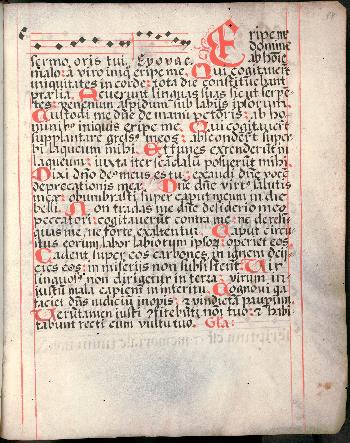 Eripe me
domine
ab hoīe
sermo oris tui. Euouae.
malo: a viro iniq̄ eripe me. Qui cogitauerūt
iniquitates in corde: tota die constituebant
prælia. Acuerunt linguas suas sicut serpē
tes: venenum aspidum sub labijs ipsorum.
Custodi me dn̄e de manu pctoris: ab ho
minibꝰ iniquis eripe me. Qui cogitauerūt
supplantare gressꝰ meos: absconderūt super
bi laqueum mihi. Et funes extenderūt in
laqueum: iuxta iter scādalū posuerūt mihi.
Dixi dn̄o deꝰ meus es tu: exaudi dn̄e vocē
deprecationis meæ. Dn̄e dn̄e virtꝰ salutis
meæ: obumbrasti super caput meum in die
belli. Non tradas me dn̄e desiderio meo
peccatori: cogitauerūt contra me: ne dereli
quas me, ne forte exaltentur. Caput circui
tus eorum: labor labiorum ipsoꝝ operiet eos.
Cadent super eos carbones, in ignem deij
cies eos: in miserijs non subsistent. Vir
linguosꝰ non dirigetur in terra: virum in
iustū mala capient in interitu. Cognoui qa
faciet dn̄s iudiciū inopis: & vindictā paupeꝝ.
Verūtamen iusti cōfitebūt noī tuo: & habi
tabunt recti cum vultu tuo. Gla: